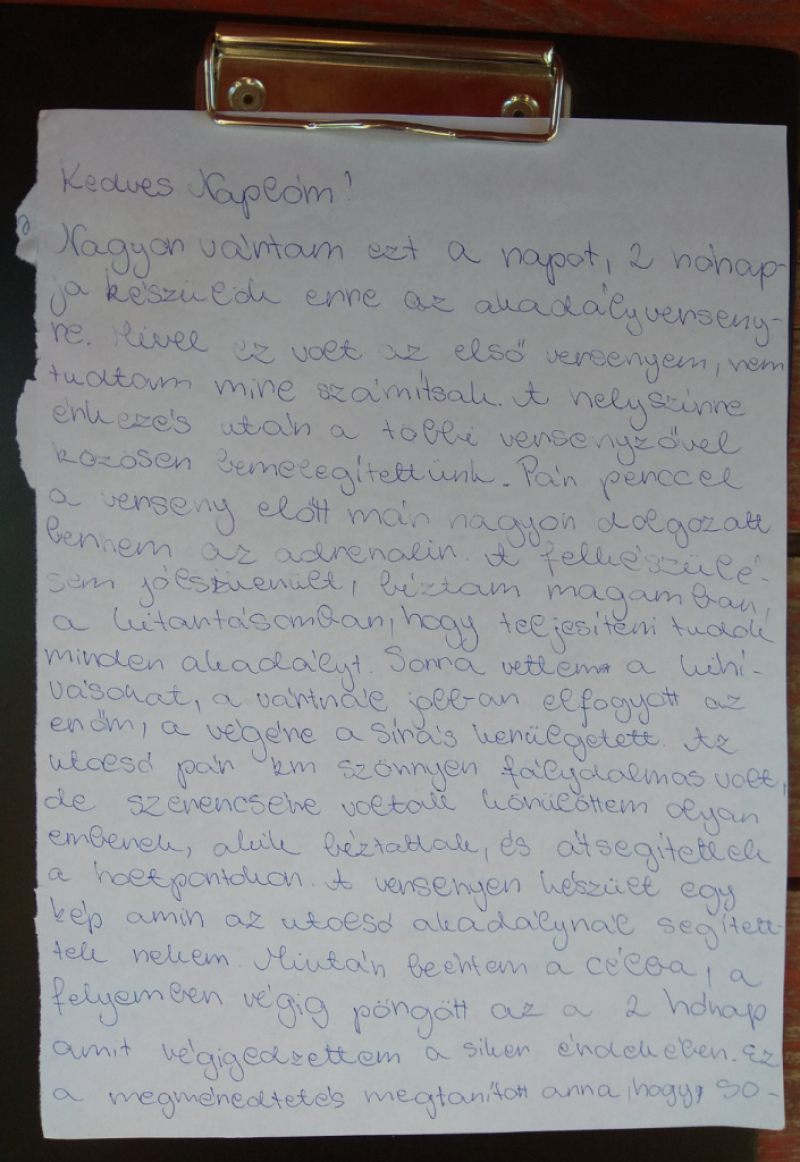 Kedves Naplóm!
Nagyon vártam ezt a napot, 2 hónap-
ja készülök erre az akadályverseny-
re. Mivel ez volt az első versenyem, nem
tudtam mire számítsak. A helyszínre
érkezés után a többi versenyzővel
közösen bemelegítettünk. Pár perccel
a verseny előtt már nagyon dolgozott
bennem az adrenalin. A felkészülé-
sem jól sikerült, bíztam magamban,
a kitartásomban, hogy teljesíteni tudok
minden akadályt. Sorra vettem a kihí-
vásokat, a vártnál jobban elfogyott az
erőm, a végére a sírás kerülgetett. Az
utolsó pár km szörnyen fálydalmas volt,
de szerencsére voltak körülöttem olyan
emberek, akik bíztattak, és átsegítettek
a holtpontokon. A versenyen készült egy
kép amin az utolsó akadálynál segített-
tek nekem. Miután beértem a célba, a
felyemben végig pörgött az a 2 hónap
amit végigedzettem a siker érdekében. Ez
a megméredtetés megtanított arra, hogy so-